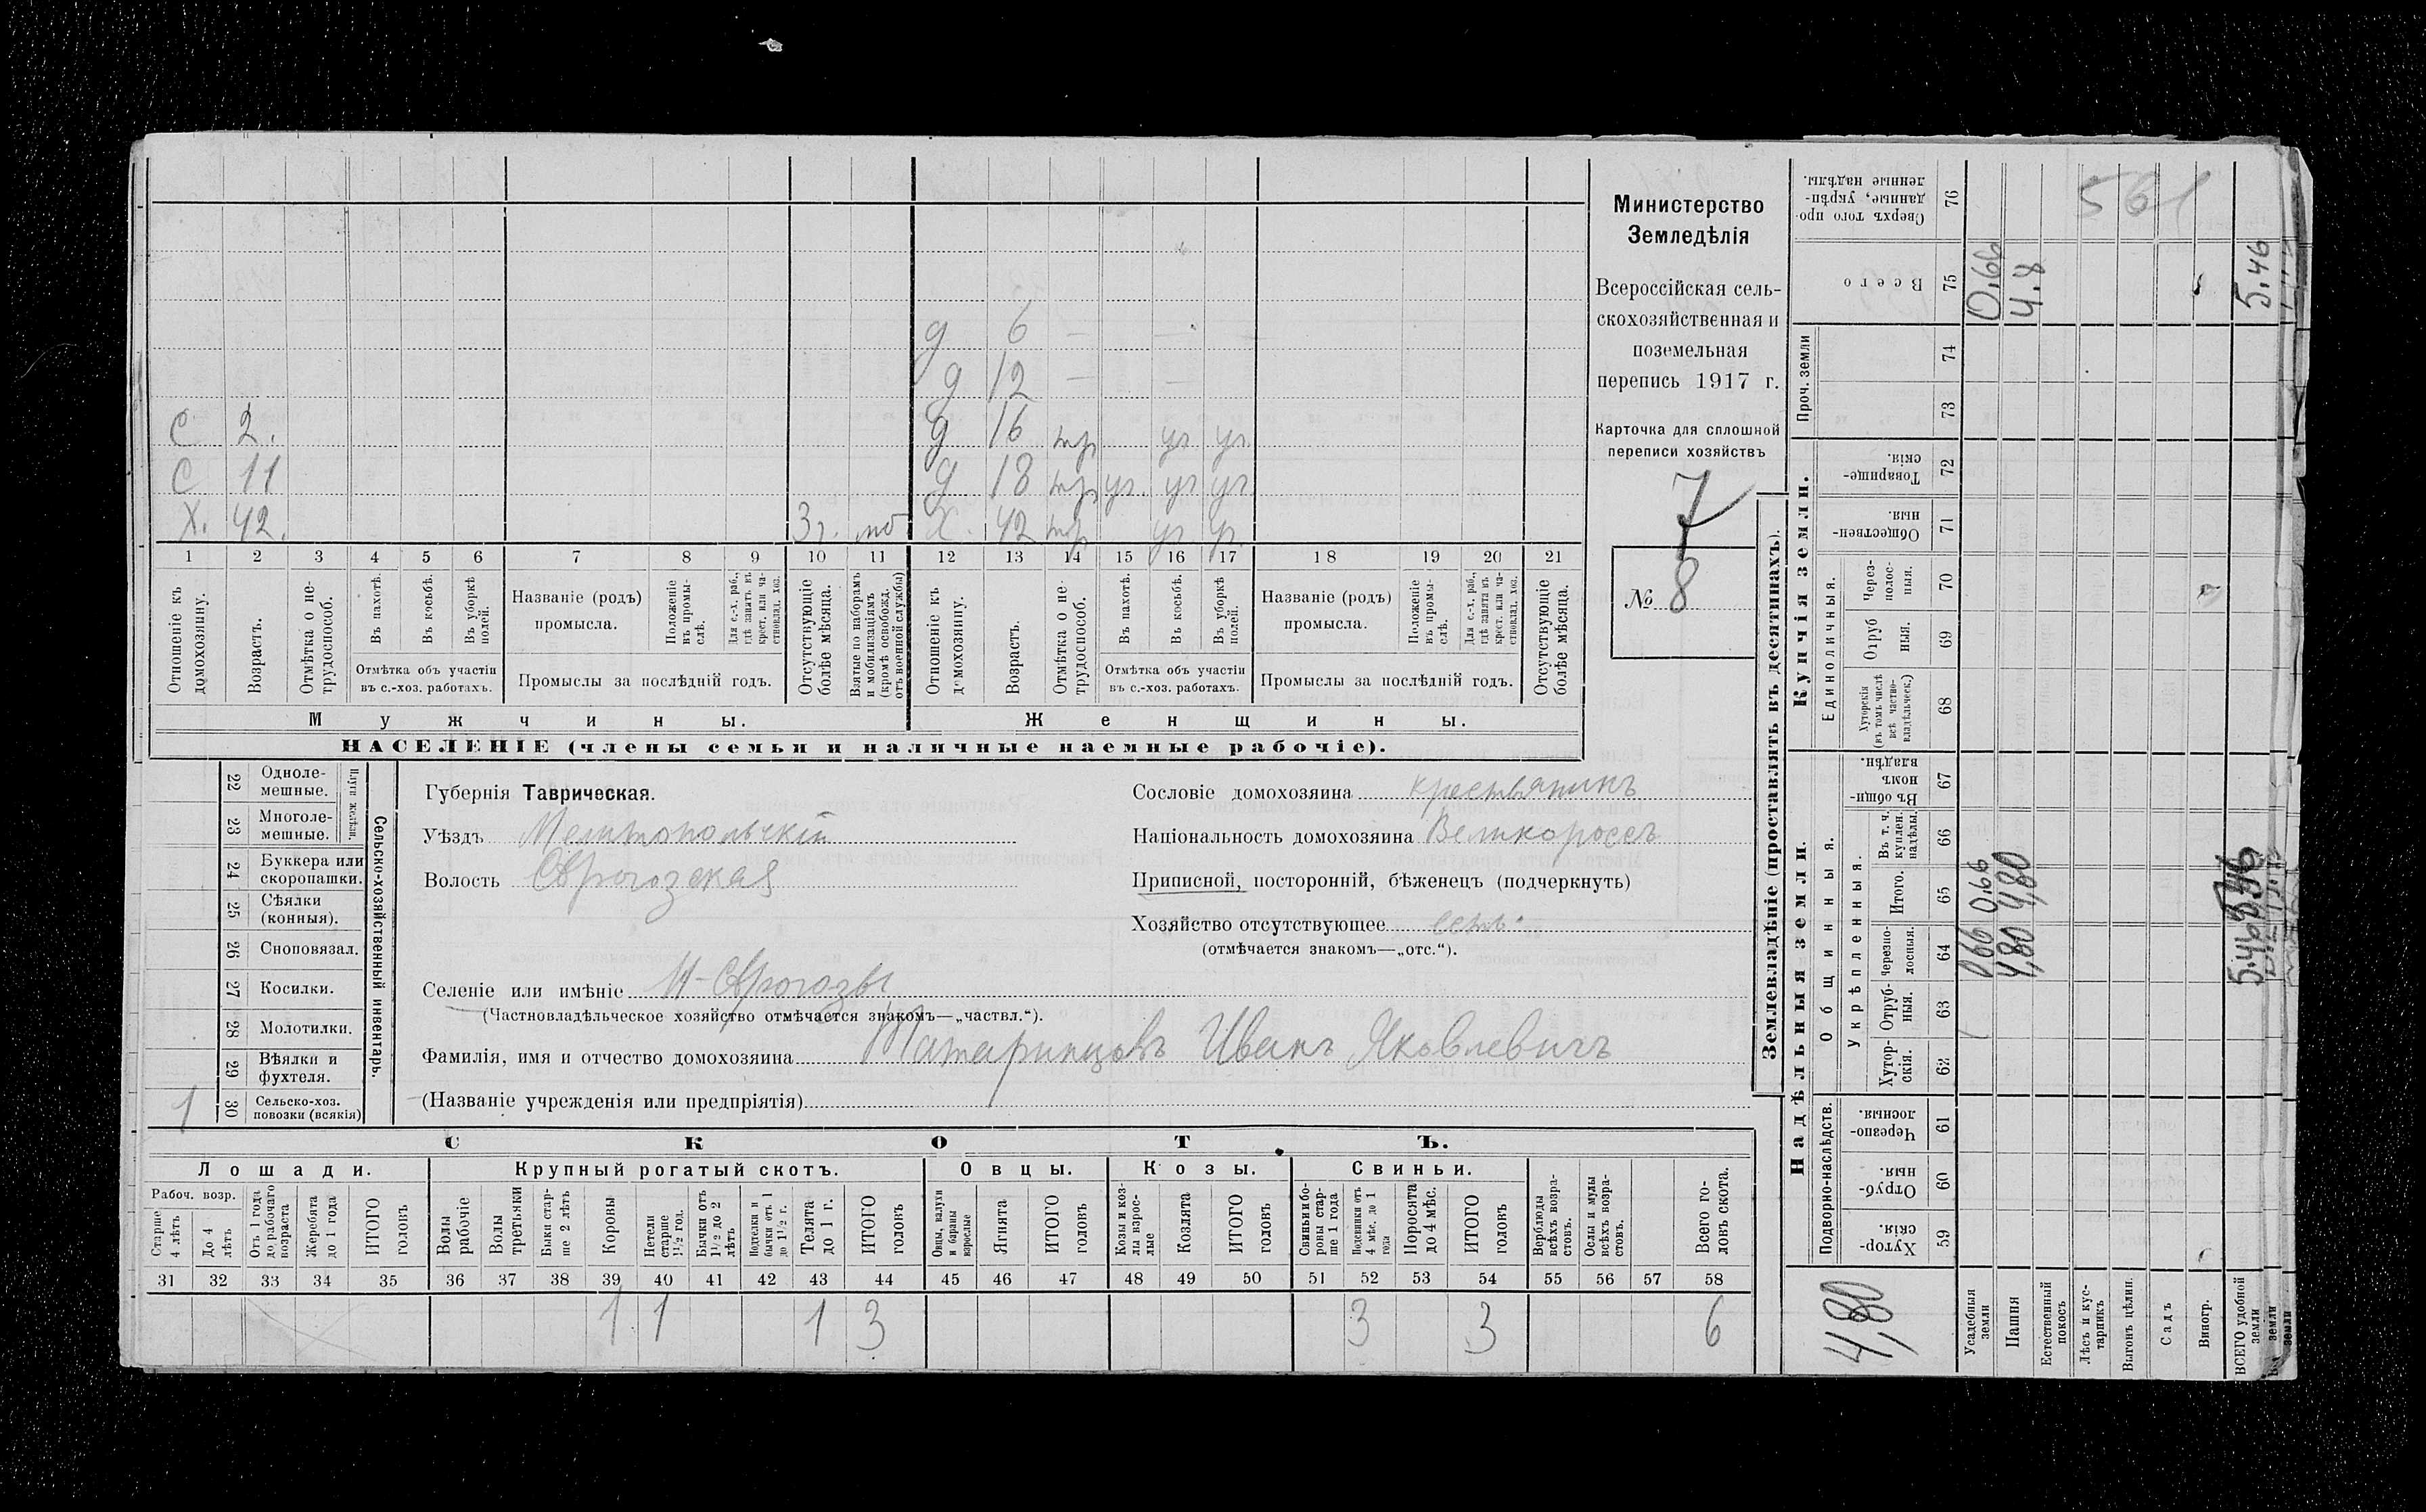 Министерство
Земледѣлія
Всероссійская сель-
скохозяйственная и
поземельная
перепись 1917 г.
Карточка для сплошной
переписи хозяйствъ
7
№ 8
д 6 — —
д 12 — —
С 2. д 16 уч уч
С 11 д 18 уч. уч уч
Х. 42. 3 г. мб Х. 42 уч. уч.
1 2 3 4 5 6 7 8 9 10 11 12 13 14 15 16 17 18 19 20 21
Отношеніе къ домохозяину.
Возрастъ.
Отмѣтка о не-трудоспособ.
Въ пахотѣ.
Въ косьбѣ.
Въ уборкѣ полей.
Отмѣтка объ участіи
въ с.-хоз. работахъ.
Названіе (родъ)
промысла.
Положеніе въ промы-слѣ.
Для с.-х. раб., гдѣ занятъ въ крест. или ча-стновлад. хоз.
Промыслы за послѣдній годъ.
Отсутствующіе болѣе мѣсяца.
Взятые по наборамъ и мобилизаціямъ (кромѣ освобожд. отъ военной службы)
Отношеніе къ домохозяину.
Возрастъ.
Отмѣтка о не-трудоспособ.
Въ пахотѣ.
Въ косьбѣ.
Въ уборкѣ полей.
Отмѣтка объ участіи
въ с.-хоз. работахъ.
Названіе (родъ)
промысла.
Положеніе въ промы-слѣ.
Для с.-х. раб., гдѣ занята въ крест. или ча-стновлад. хоз.
Промыслы за послѣдній годъ.
Отсутствующіе болѣе мѣсяца.
Мужчины. Женщины.
НАСЕЛЕНІЕ (члены семьи и наличные наемные рабочіе).
Сельско-хозяйственный инвентарь.
Плуги желѣзн.
22 Одноле-мешные.
23 Многоле-мешные.
24 Буккера или скоропашки.
25 Сѣялки (конныя).
26 Сноповязал.
27 Косилки.
28 Молотилки.
29 Вѣялки и фухтеля.
1 30 Сельско-хоз. повозки (всякія)
Губернія Таврическая.
Уѣздъ Мелитопольскій
Волость Сѣрогозская
Сословіе домохозяина крестьянинъ
Національность домохозяина Великороссъ
Приписной, посторонній, бѣженецъ (подчеркнуть)
Хозяйство отсутствующее
(отмѣчается знакомъ—„отс.“).
Селеніе или имѣніе Н-Сѣрогозы
(Частновладѣльческое хозяйство отмѣчается знакомъ—„частвл.“).
Фамилія, имя и отчество домохозяина Татаринцовъ Иванъ Яковлевичъ
(Названіе учрежденія или предпріятія)
СКОТЪ.
Лошади. Крупный рогатый скотъ. Овцы. Козы. Свиньи.
Рабоч. возр.
Старше 4 лѣтъ
До 4 лѣтъ
Отъ 1 года до рабочаго возраста
Жеребята до 1 года
ИТОГО головъ
Волы рабочіе
Волы третьяки
Быки стар-ше 2 лѣтъ
Коровы
Нетели старше 1½ год.
Бычки отъ 1½ до 2 лѣтъ
Подтелки и бычки отъ 1 до 1½ г.
Телята до 1 г.
ИТОГО головъ
Овцы, валухи и бараны взрослые
Ягнята
ИТОГО головъ
Козы и коз-лы взрос-лые
Козлята
ИТОГО головъ
Свиньи и бо-ровы стар-ше 1 года
Подсвинки отъ 4 мѣс. до 1 года
Поросята до 4 мѣс.
ИТОГО головъ
Верблюды всѣхъ возра-стовъ.
Ослы и мулы всѣхъ возра-стовъ.
Всего го-ловъ скота.
31 32 33 34 35 36 37 38 39 40 41 42 43 44 45 46 47 48 49 50 51 52 53 54 55 56 57 58
1 1 1 3 3 3 6
Землевладѣніе (проставлять въ десятинахъ).
Надѣльныя земли. Купчія земли.
Подворно-наслѣдств.
Общинныя.
Укрѣпленныя.
Единоличныя.
Проч. земли
59 Хутор-скія.
60 Отруб-ныя.
61 Черезпо-лосныя.
62 Хутор-скія.
63 Отруб-ныя.
64 Черезпо-лосныя.
65 Итого.
66 Въ т. ч. куплен. надѣлы.
67 Въ общи-номъ владѣн.
68 Хуторскія (въ томъ числѣ всѣ частно-владѣльческ.)
69 Отруб ныя.
70 Через-полос-ныя.
71 Обществен-ныя.
72 Товарище-скія.
73
74
75 Всего
76 Сверхъ того про-данные, укрѣп-ленные надѣлы.
4,80
Усадебныя земли 0,66 0,66 0,66
Пашня 4,80 4,80 4.8
Естественный покосъ
Лѣсъ и кус-тарникъ
Выгонъ цѣлин.
Садъ
Виногр.
ВСЕГО удобной земли 5.46 5.46 5.46
561